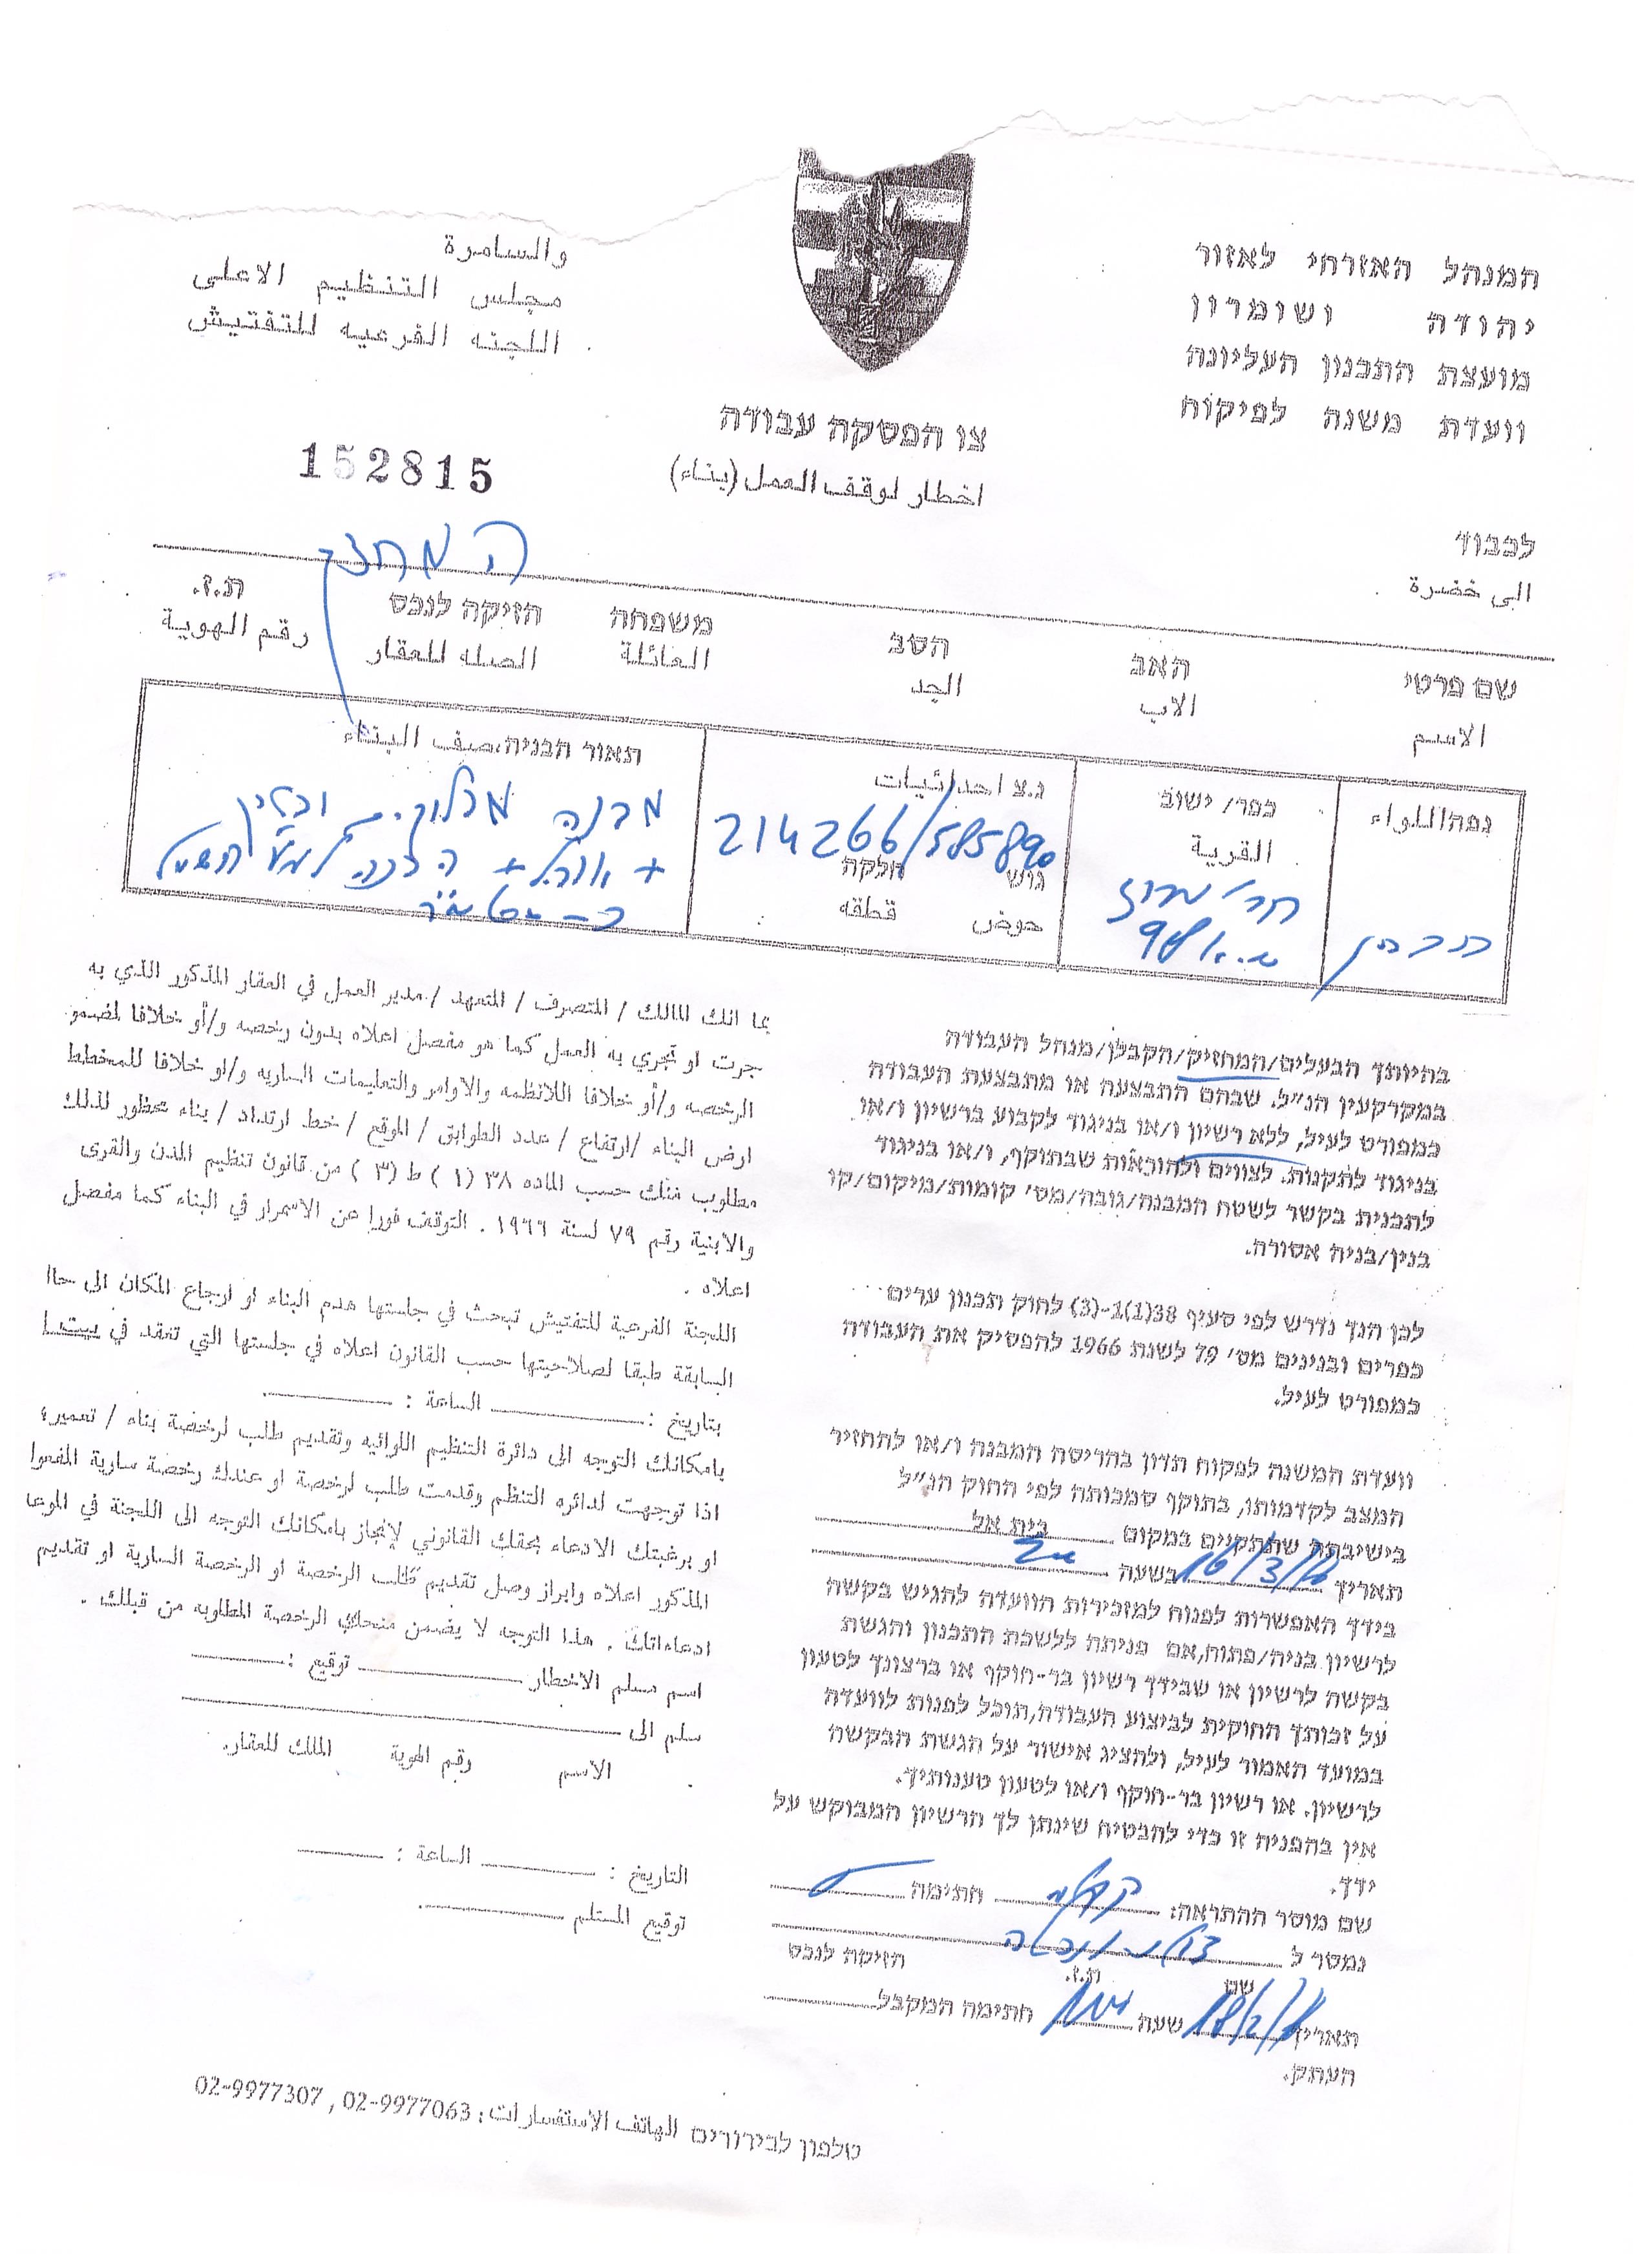 המנהל האזרחי לאזור
יהודה ושומרון
מועצת התכנון העליונה
וועדת משנה לפיקוח
والسامرة
مجلس التنظيم الاعلى
اللجنه الفرعيه للتفتيش
צו הפסקה עבודה
اخطار لوقف العمل (بناء)
152815
לכבוד
الى حضرة
המחזיק
שם פרטי האב הסב משפחה חזיקה לנכס ת.ז.
الاسم الاب الجد العائلة الصله للعقار رقم الهوية
נפה/اللواء
כפר/ ישוב
القرية
נ.צ احداثيات
214266/585890
גוש חלקה
حوض قطعه
תאור הבניה،صيف البناء
מבנה
בהיותך הבעלים/המחזיק/הקבלן/מנהל העבודה
במקרקעין הנ״ל, שבהם התבצעה או מתבצעת העבודה
כמפורט לעיל, ללא רשיון ו/או בניגוד לקבוע ברשיון ו/או
בניגוד לתקנות, לצווים ולהוראות שבתוקף, ו/או בניגוד
לתכנית בקשר לשטח המבנה/גובה/מס׳ קומות/מיקום/קו
בנין/בניה אסורה.
לכן הנך נדרש לפי סעיף 38(1)1-(3) לחוק תכנון ערים
כפרים ובנינים מס׳ 79 לשנת 1966 להפסיק את העבודה
כמפורט לעיל.
וועדת המשנה לפקוח תדון בהריסת המבנה ו/או להחזיר
המצב לקדמותו, בתוקף סמכותה לפי החוק הנ״ל
בישיבתה שתתקיים במקום בית אל
תאריך בשעה
בידך האפשרות לפנות למזכירות הוועדה להגיש בקשה
לרשיון בניה/פתוח,אם פניתה ללשכת התכנון והגשת
בקשה לרשיון או שבידך רשיון בר-תוקף או ברצונך לטעון
על זכותך החוקית לביצוע העבודה,תוכל לפנות לוועדה
במועד האמור לעיל, ולהציג אישור על הגשת הבקשה
לרשיון. או רשיון בר-תוקף ו/או לטעון טענותיך.
אין בהפניה זו כדי להבטיח שינתן לך הרשיון המבוקש על
ידך.
שם מוסר ההתראה: חתימה
נמסר ל
שם ת.ז. חזיקה לנכס
תאריך שעה חתימה המקבל
העתק.
بما انك المالك / المتصرف / المتعهد / مدير العمل في العقار المذكور الذي به
جرت او تجري به العمل كما هو مفصل اعلاه بدون رخصه و/أو خلافا لمضمو
الرخصه و/أو خلافا اللانظمه والاوامر والتعليمات الساريه و/او خلافا للمخطط
ارض البناء /ارتفاع / عدد الطوابق / الموقع / خط ارتداد / بناء محظور لذلك
مطلوب منك حسب الماده ٣٨ (١) ط (٣) من قانون تنظيم المدن والقرى
والابنية رقم ٧٩ لسنة ١٩٦٦ . التوقف فورا عن الاسمرار في البناء كما مفصل
اعلاه .
اللجنة الفرعية للتفتيش تبحث في جلستها هدم البناء او ارجاع المكان الى حاا
السابقة طبقا لصلاحيتها حسب القانون اعلاه في جلستها التي تعقد في
بتاريخ : الساعة :
بامكانك التوجه الى دائرة التنظيم اللوائيه وتقديم طلب لرخصة بناء / تعمير؛
اذا توجهت لدائره التنظم وقدمت طلب لرخصة او عندك رخصة سارية المفعوا
او برغبتك الادعاء بحقك القانوني لإنجاز بامكانك التوجه الى اللجنة في الموعا
المذكور اعلاه وابراز وصل تقديم طلب الرخصة او الرخصة السارية او تقديم
ادعاءاتك . هذا التوجه لا يضمن منحك الرخصة المطلوبه من قبلك .
اسم مسلم الاخطار توقيع :
سلم الى
الاسم رقم الهوية الملك للعقار.
التاريخ : الساعة :
توقيع المستلم
טלפון לבירורים الهاتف الاستفسارات: 02-9977063 , 02-9977307